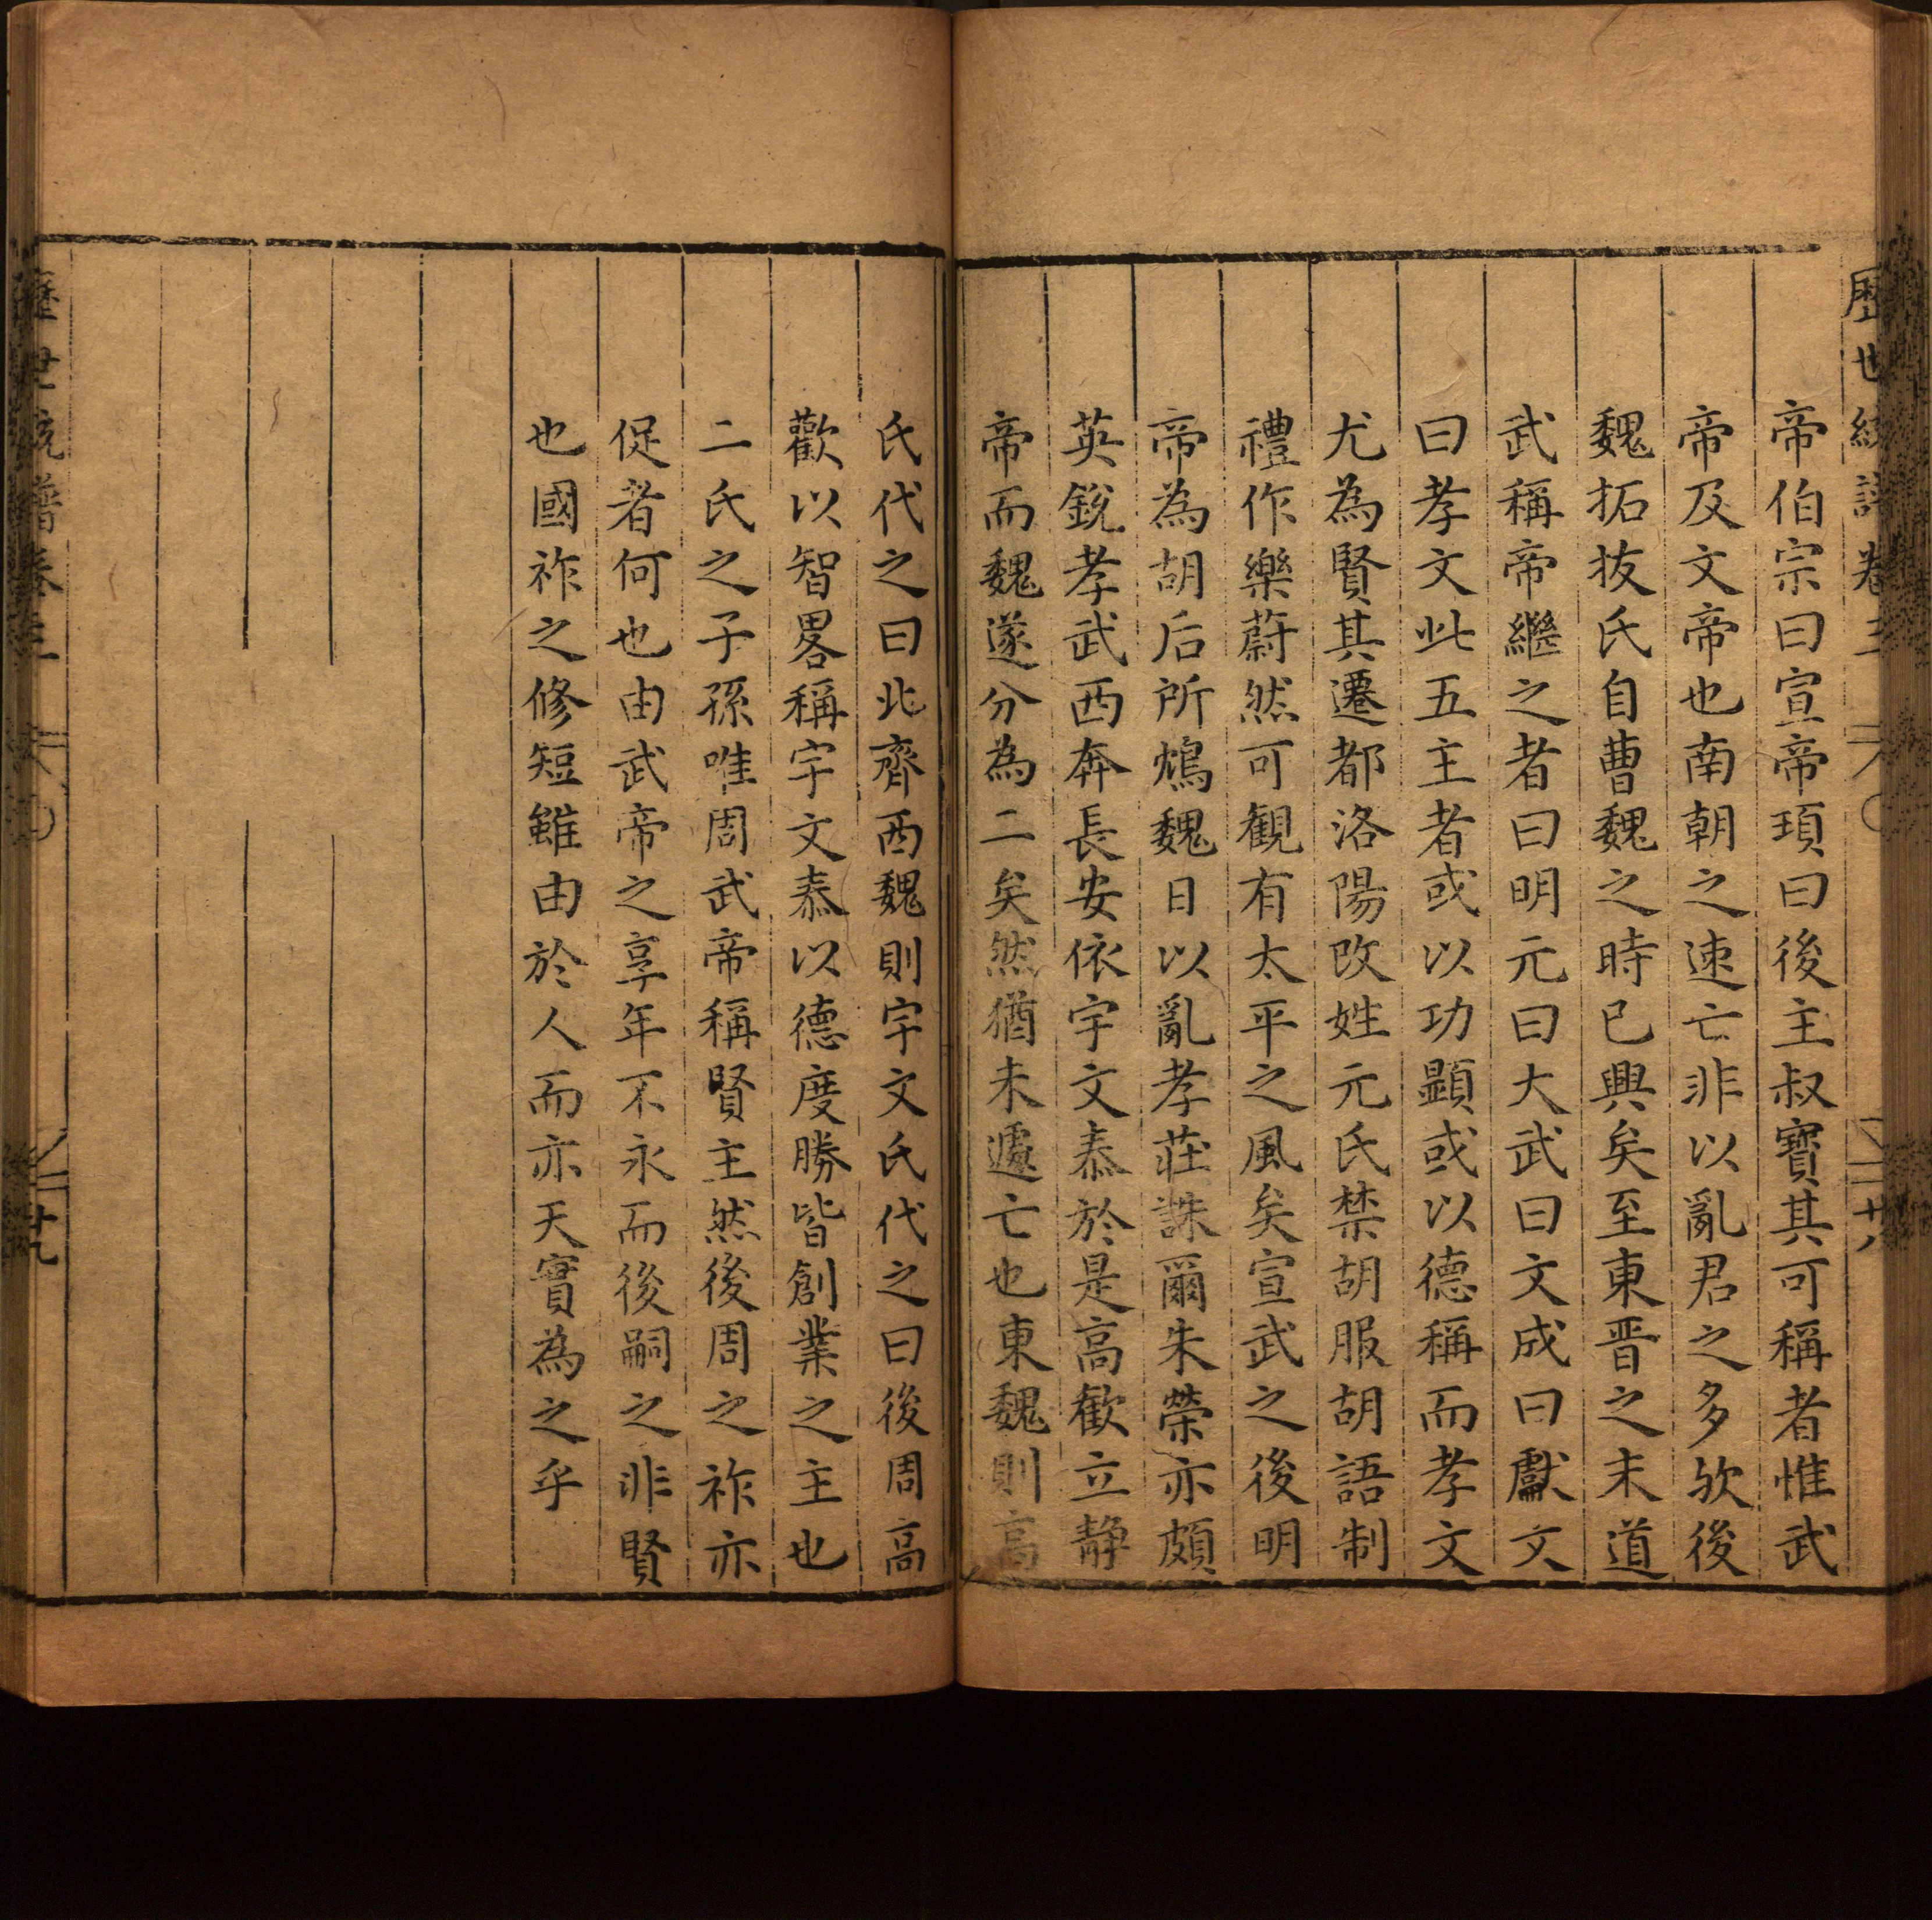 歷世統譜卷三 廿八
帝伯宗曰宣帝頊曰後主叔寳其可稱者惟武
帝及文帝也南朝之速亡非以亂君之多欤後
魏拓抜氏自曹魏之時已興矣至東晋之末道
武稱帝繼之者曰明元曰大武曰文成曰獻文
曰孝文此五主者或以功顯或以德稱而孝文
尤為賢其遷都洛陽改姓元氏禁胡服胡語制
禮作樂蔚然可観有太平之風矣宣武之後明
帝為胡后所鴆魏日以亂孝莊誅爾朱榮亦頗
英銳孝武西奔長安依宇文泰於是高歡立静
帝而魏遂分為二矣然猶未遽亡也東魏則高
氏代之曰北齊西魏則宇文氏代之曰後周高
歡以智畧稱宇文泰以德度勝皆創業之主也
二氏之子孫唯周武帝稱賢主然後周之祚亦
促者何也由武帝之享年不永而後嗣之非賢
也國祚之修短雖由於人而亦天實為之乎
歷世統譜卷三 廿九